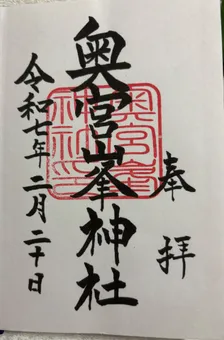 奉拝
奥宮峯神社
令和七年二月二十日